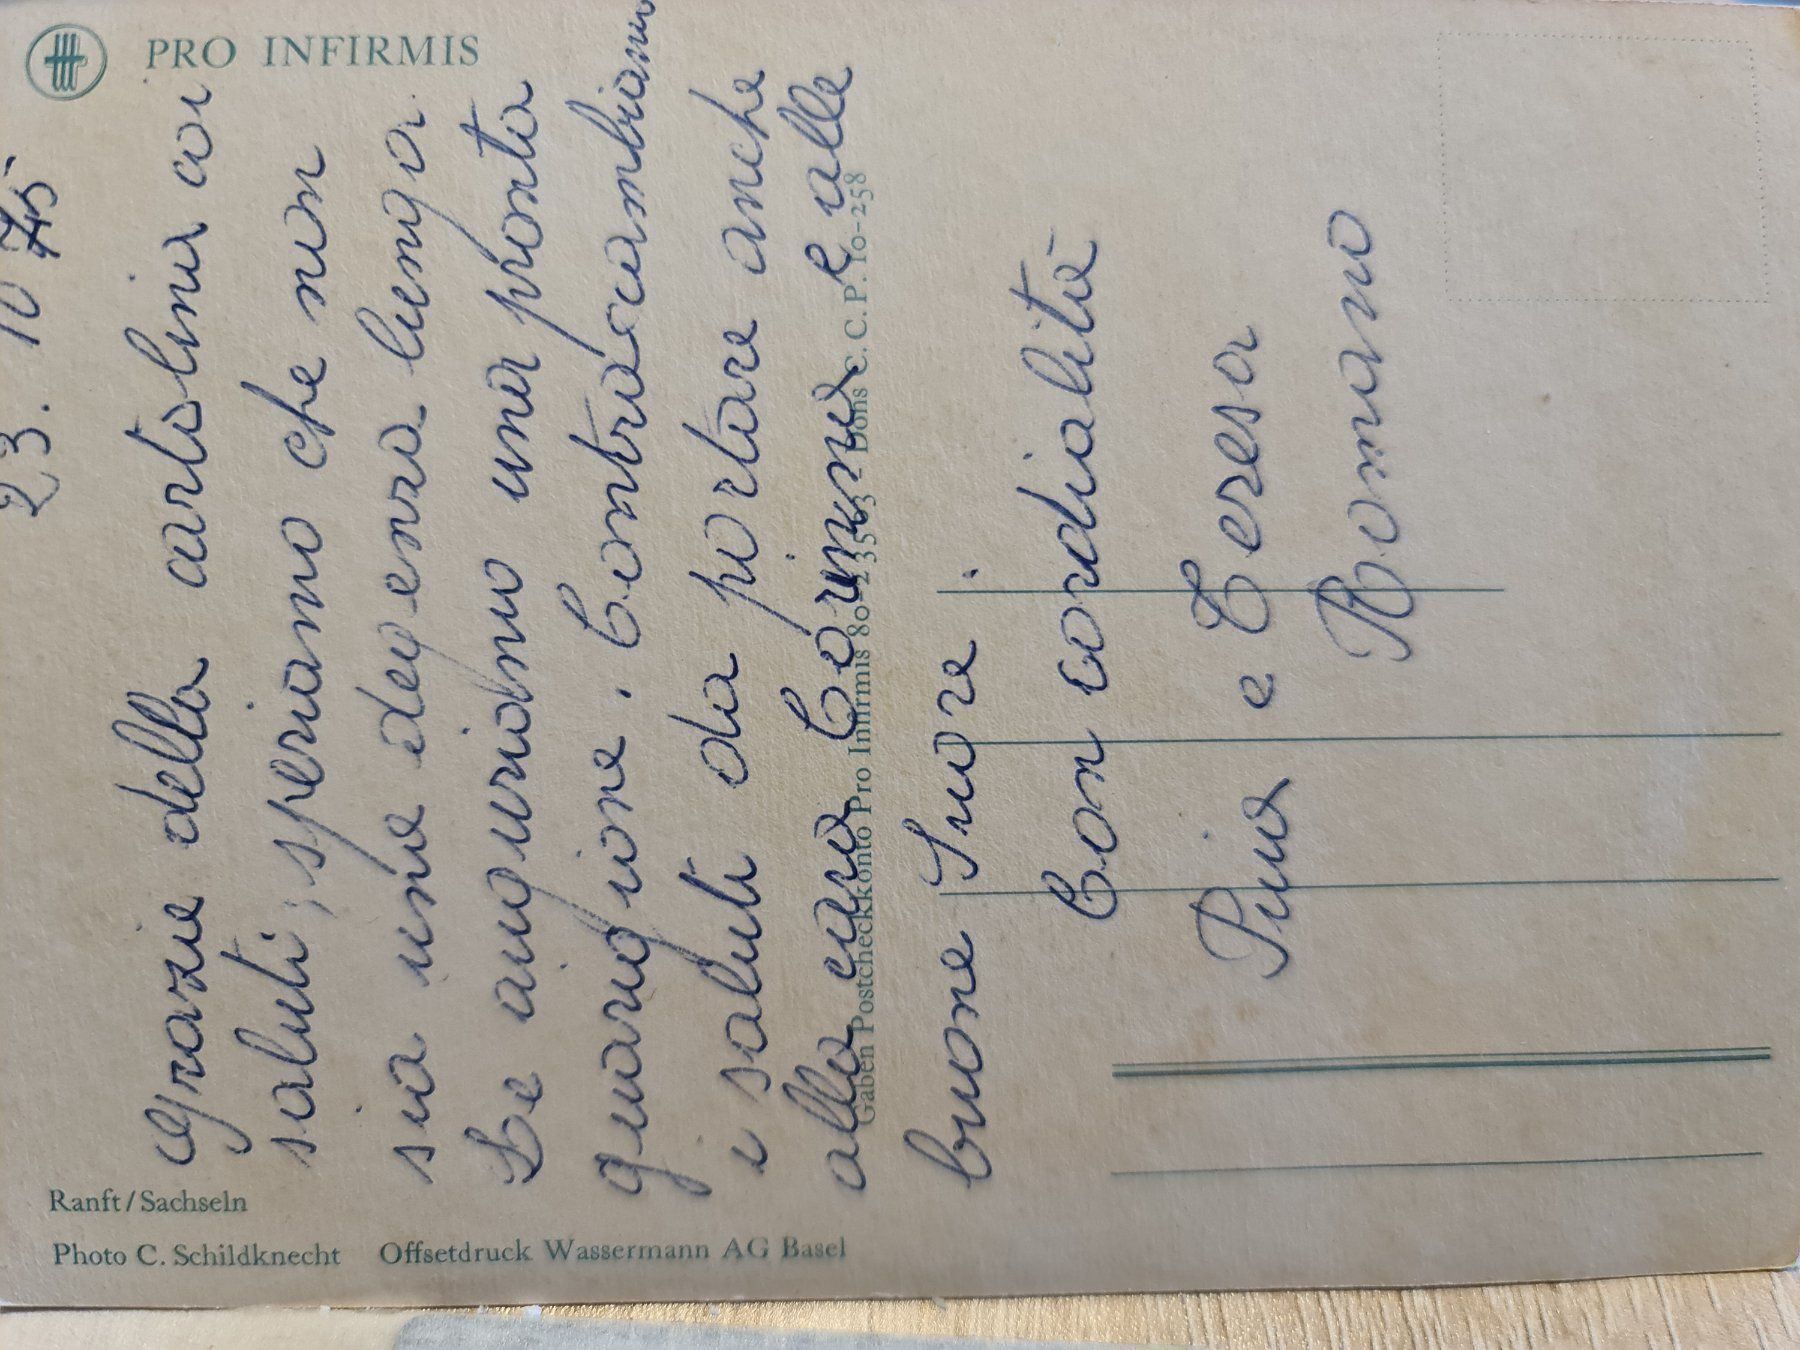 PRO INFIRMIS
23. 10 75
Grazie della cartolina coi
saluti; speriamo che non
sia una degenza lunga.
Le auguriamo una pronta
guarigione. Contraccambiamo
i saluti da portare anche
alla cara Corinna e alle
buone Suore.
Con cordialità
Pina e Teresa
Romano
Gaben Postcheckkonto Pro Infirmis 80-23503 Dons C. C. P. 10-258
Ranft/Sachseln
Photo C. Schildknecht Offsetdruck Wassermann AG Basel